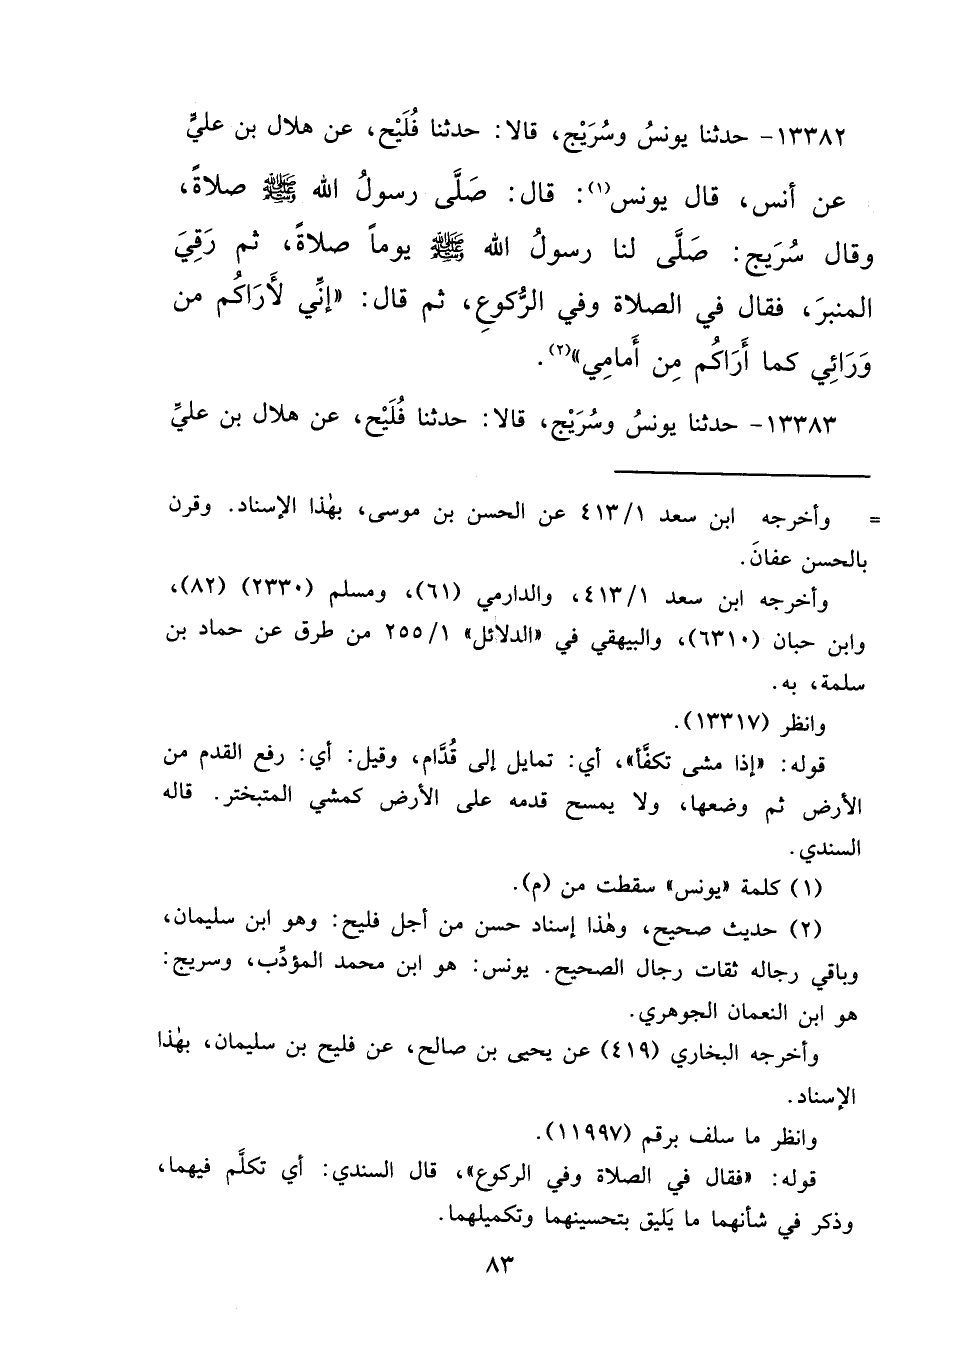 ١٣٣٨٢- حدثنا يونسُ وسُرَيْج، قالا: حدثنا فُلَيْح، عن هلال بن عليٍّ
عن أنس، قال يونس(١): قال: صَلَّى رسولُ الله ﷺ صلاةً،
وقال سُرَيج: صَلَّى لنا رسولُ الله ﷺ يوماً صلاةً، ثم رَقِيَ
المنبرَ، فقال في الصلاة وفي الرُّكوعِ، ثم قال: «إنِّي لَأَرَاكُم من
وَرَائِي كما أَرَاكُم مِن أَمامِي»(٢).
١٣٣٨٣- حدثنا يونسُ وسُرَيْج، قالا: حدثنا فُلَيْح، عن هلال بن عليٍّ
= وأخرجه ابن سعد ٤١٣/١ عن الحسن بن موسى، بهٰذا الإسناد. وقرن
بالحسن عفانَ.
وأخرجه ابن سعد ٤١٣/١، والدارمي (٦١)، ومسلم (٢٣٣٠) (٨٢)،
وابن حبان (٦٣١٠)، والبيهقي في «الدلائل» ٢٥٥/١ من طرق عن حماد بن
سلمة، به.
وانظر (١٣٣١٧).
قوله: «إذا مشى تكفَّأ»، أي: تمايل إلى قُدَّام، وقيل: أي: رفع القدم من
الأرض ثم وضعها، ولا يمسح قدمه على الأرض كمشي المتبختر. قاله
السندي.
(١) كلمة «يونس» سقطت من (م).
(٢) حديث صحيح، وهٰذا إسناد حسن من أجل فليح: وهو ابن سليمان،
وباقي رجاله ثقات رجال الصحيح. يونس: هو ابن محمد المؤدِّب، وسريج:
هو ابن النعمان الجوهري.
وأخرجه البخاري (٤١٩) عن يحيى بن صالح، عن فليح بن سليمان، بهٰذا
الإسناد.
وانظر ما سلف برقم (١١٩٩٧).
قوله: «فقال في الصلاة وفي الركوع»، قال السندي: أي تكلَّم فيهما،
وذكر في شأنهما ما يَليق بتحسينهما وتكميلهما.
٨٣